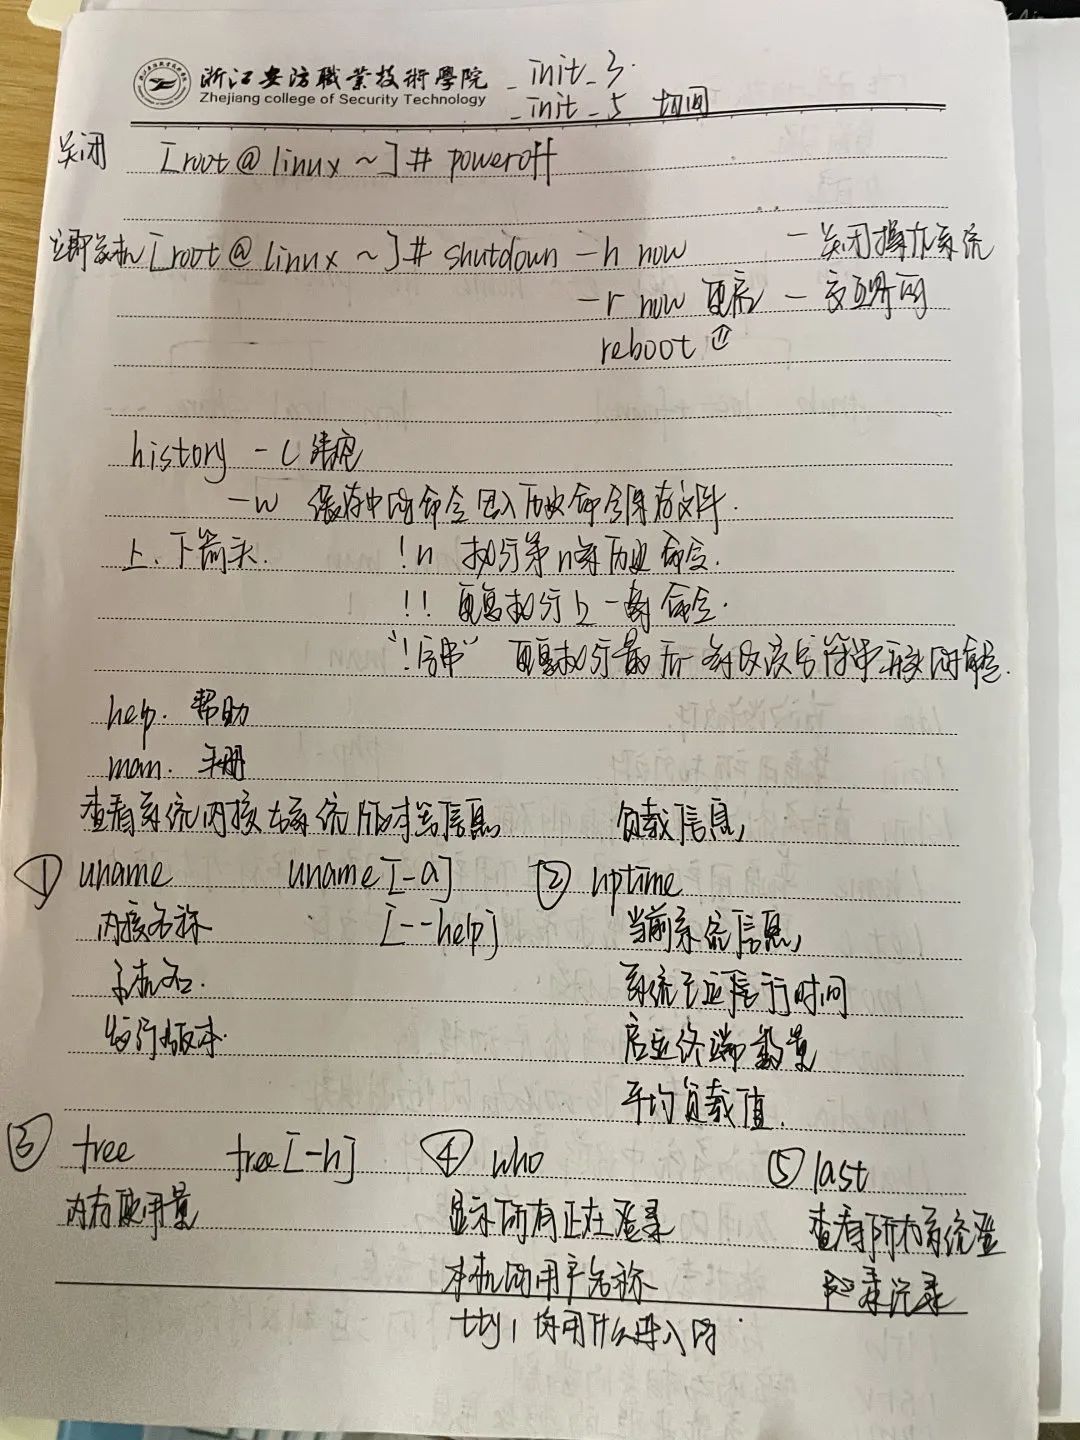 浙江安防職業技術學院
Zhejiang college of Security Technology
- init - 3.
- init - 5 切回
关闭 [root@linux ~]# poweroff
立即关机 [root@linux ~]# shutdown -h now - 关闭操作系统
-r now 重启 -
reboot
history - c 清空
-w 缓存中的命令 写入历史命令保存文件.
上、下箭头. !n 执行第n条历史命令.
!! 重复执行上一条命令.
"!字串" 重复执行最后一条以该字符串开头的命令.
help. 帮助
man. 手册
查看系统内核与系统版本等信息 负载信息,
① uname uname [-a] ② uptime
内核名称 [--help] 当前系统信息,
主机名. 系统已运行时间
发行版本. 启动终端数量
平均负载值.
③ free free [-h] ④ who ⑤ last
内存使用量 显示所有正在登录 查看所有系统登
本机的用户名称 录记录
tty1 使用什么进入的